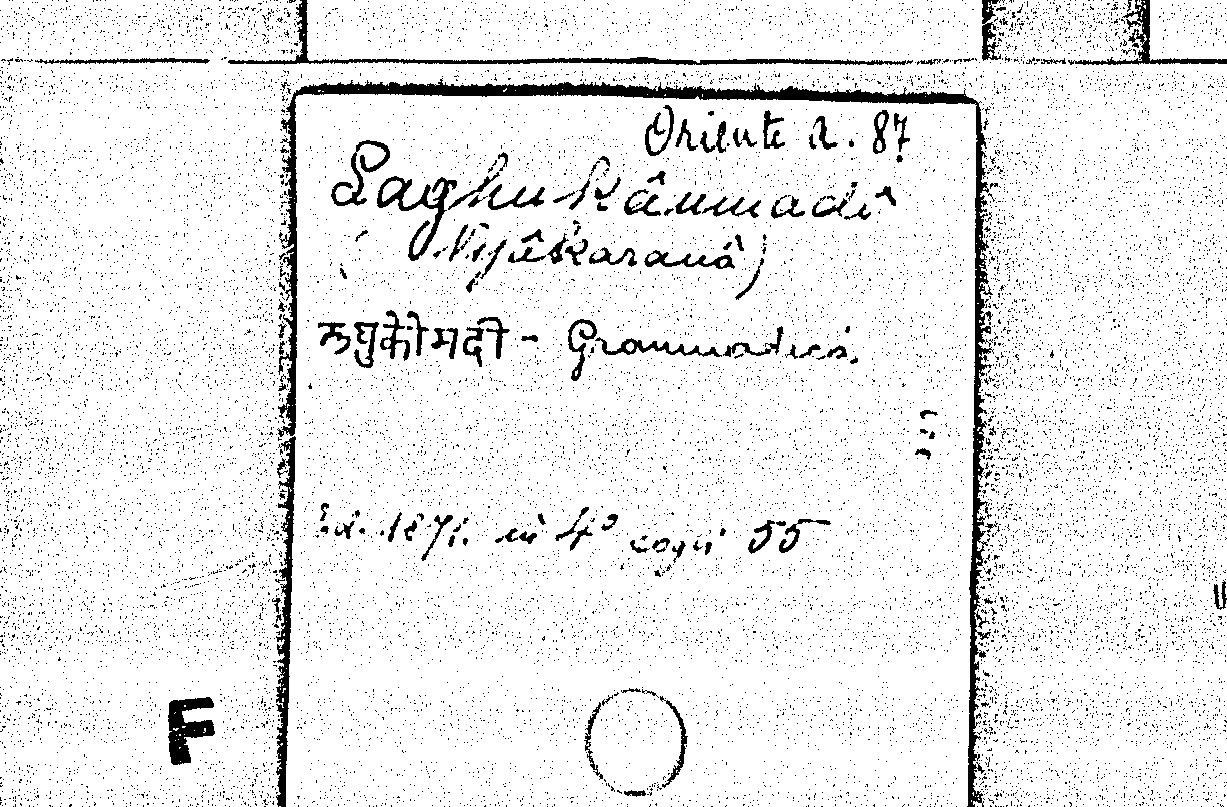 Oriente R. 87
Laghu Kâumadî
( Vyâkaranâ )
लघुकोमदी - Grammatica.
Ed. 1871. in 4º cogn 55
F